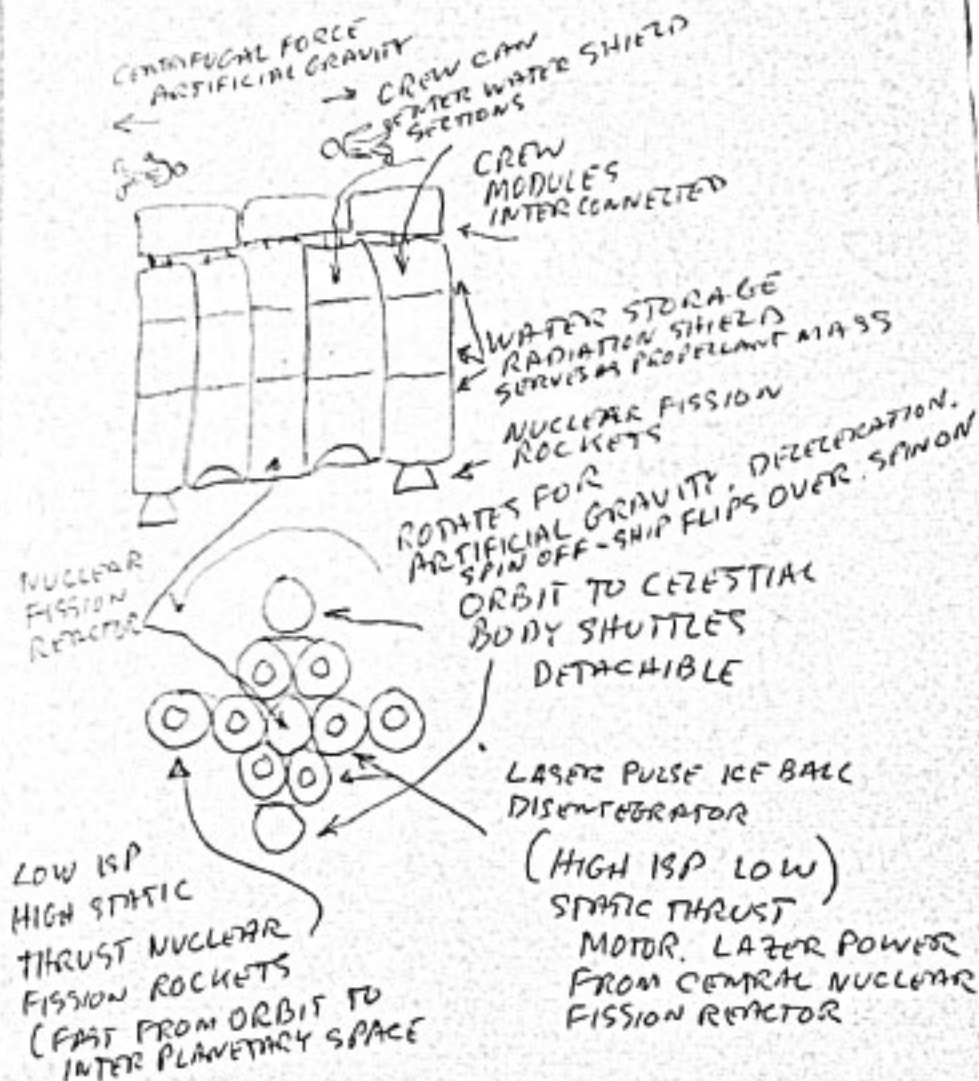 CENTRIFUGAL FORCE
ARTIFICIAL GRAVITY
CREW CAN
ENTER WATER SHIELD
SECTIONS
CREW
MODULES
INTERCONNECTED
WATER STORAGE
RADIATION SHIELD
SERVES AS PROPELLANT MASS
NUCLEAR FISSION
ROCKETS
ROTATES FOR
ARTIFICIAL GRAVITY. DECELERATION.
SPIN OFF-SHIP FLIPS OVER. SPIN ON
NUCLEAR
FISSION
REACTOR
ORBIT TO CELESTIAL
BODY SHUTTLES
DETACHIBLE
LASER PULSE ICE BALL
DISENTEGRATOR
(HIGH ISP LOW)
STATIC THRUST
MOTOR. LAZER POWER
FROM CENTRAL NUCLEAR
FISSION REACTOR
LOW ISP
HIGH STATIC
THRUST NUCLEAR
FISSION ROCKETS
(FAST FROM ORBIT TO
INTER PLANETARY SPACE